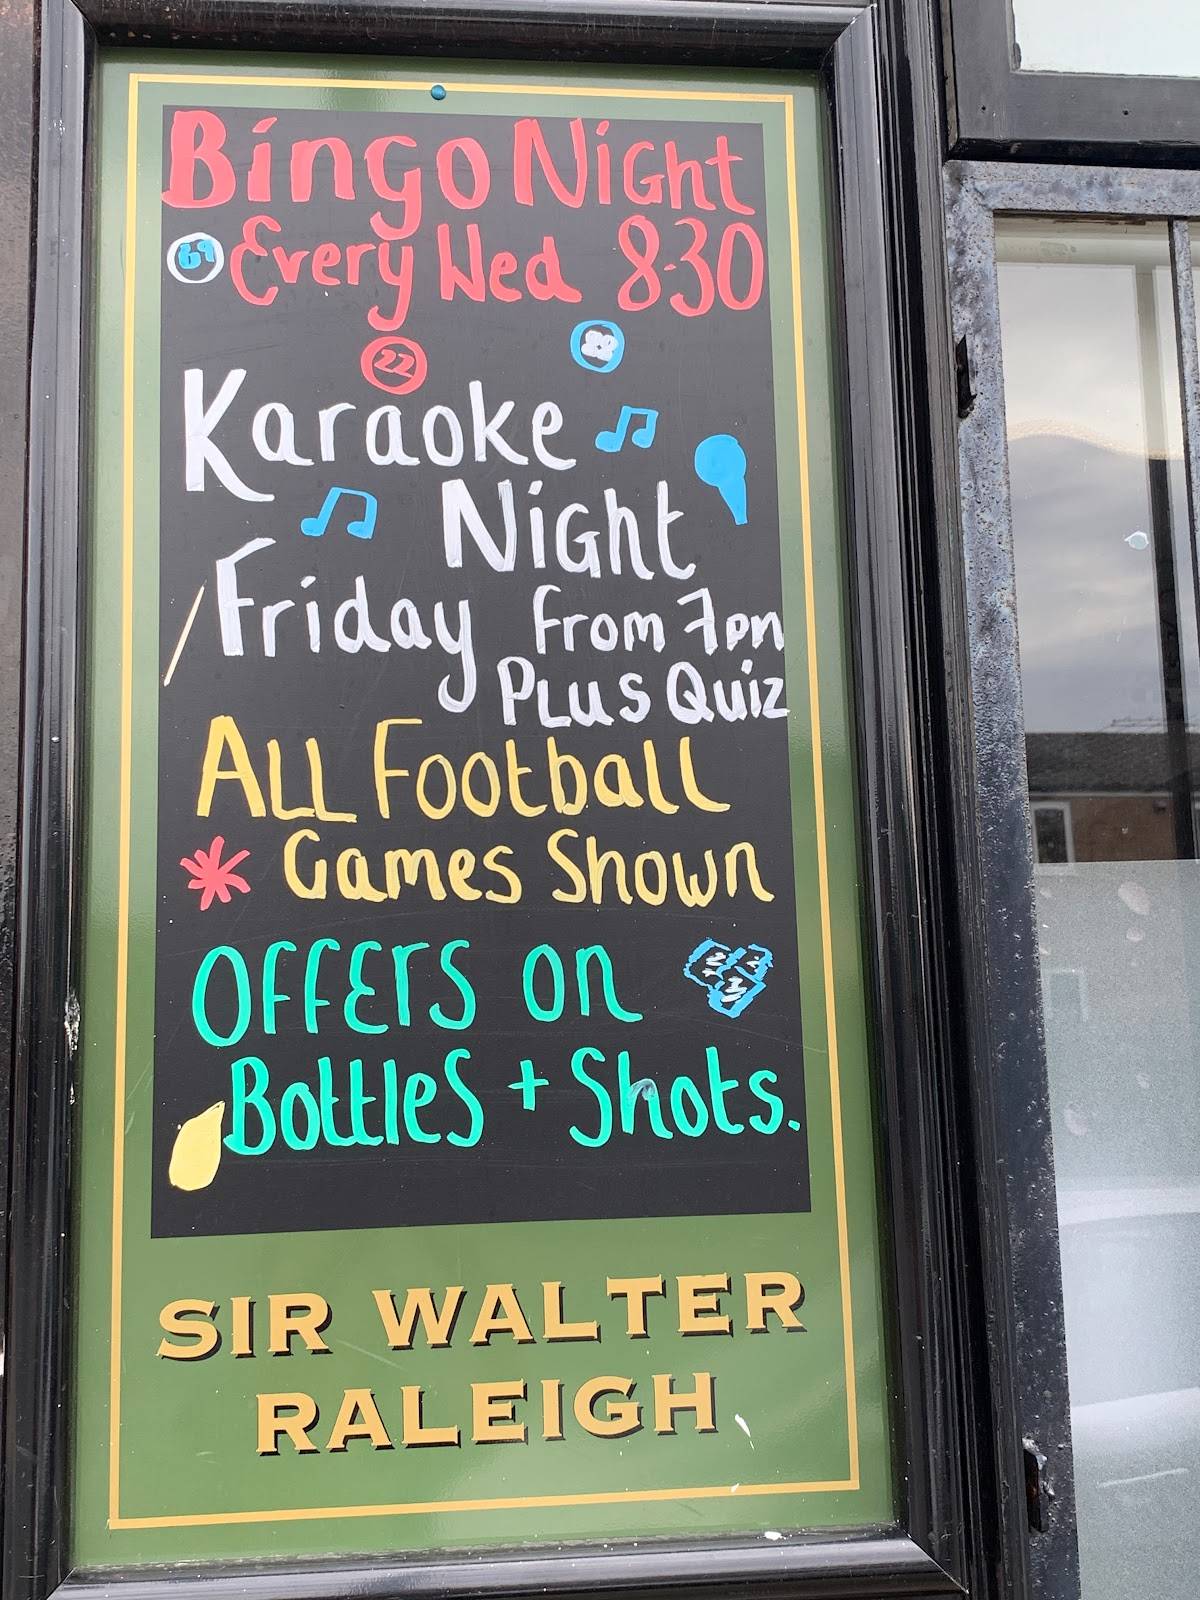 Bingo Night
69 Every Wed 8.30
22
Karaoke
Night
Friday from 7pm
Plus Quiz
ALL Football
Games Shown
Offers on
Bottles + Shots.
SIR WALTER
RALEIGH